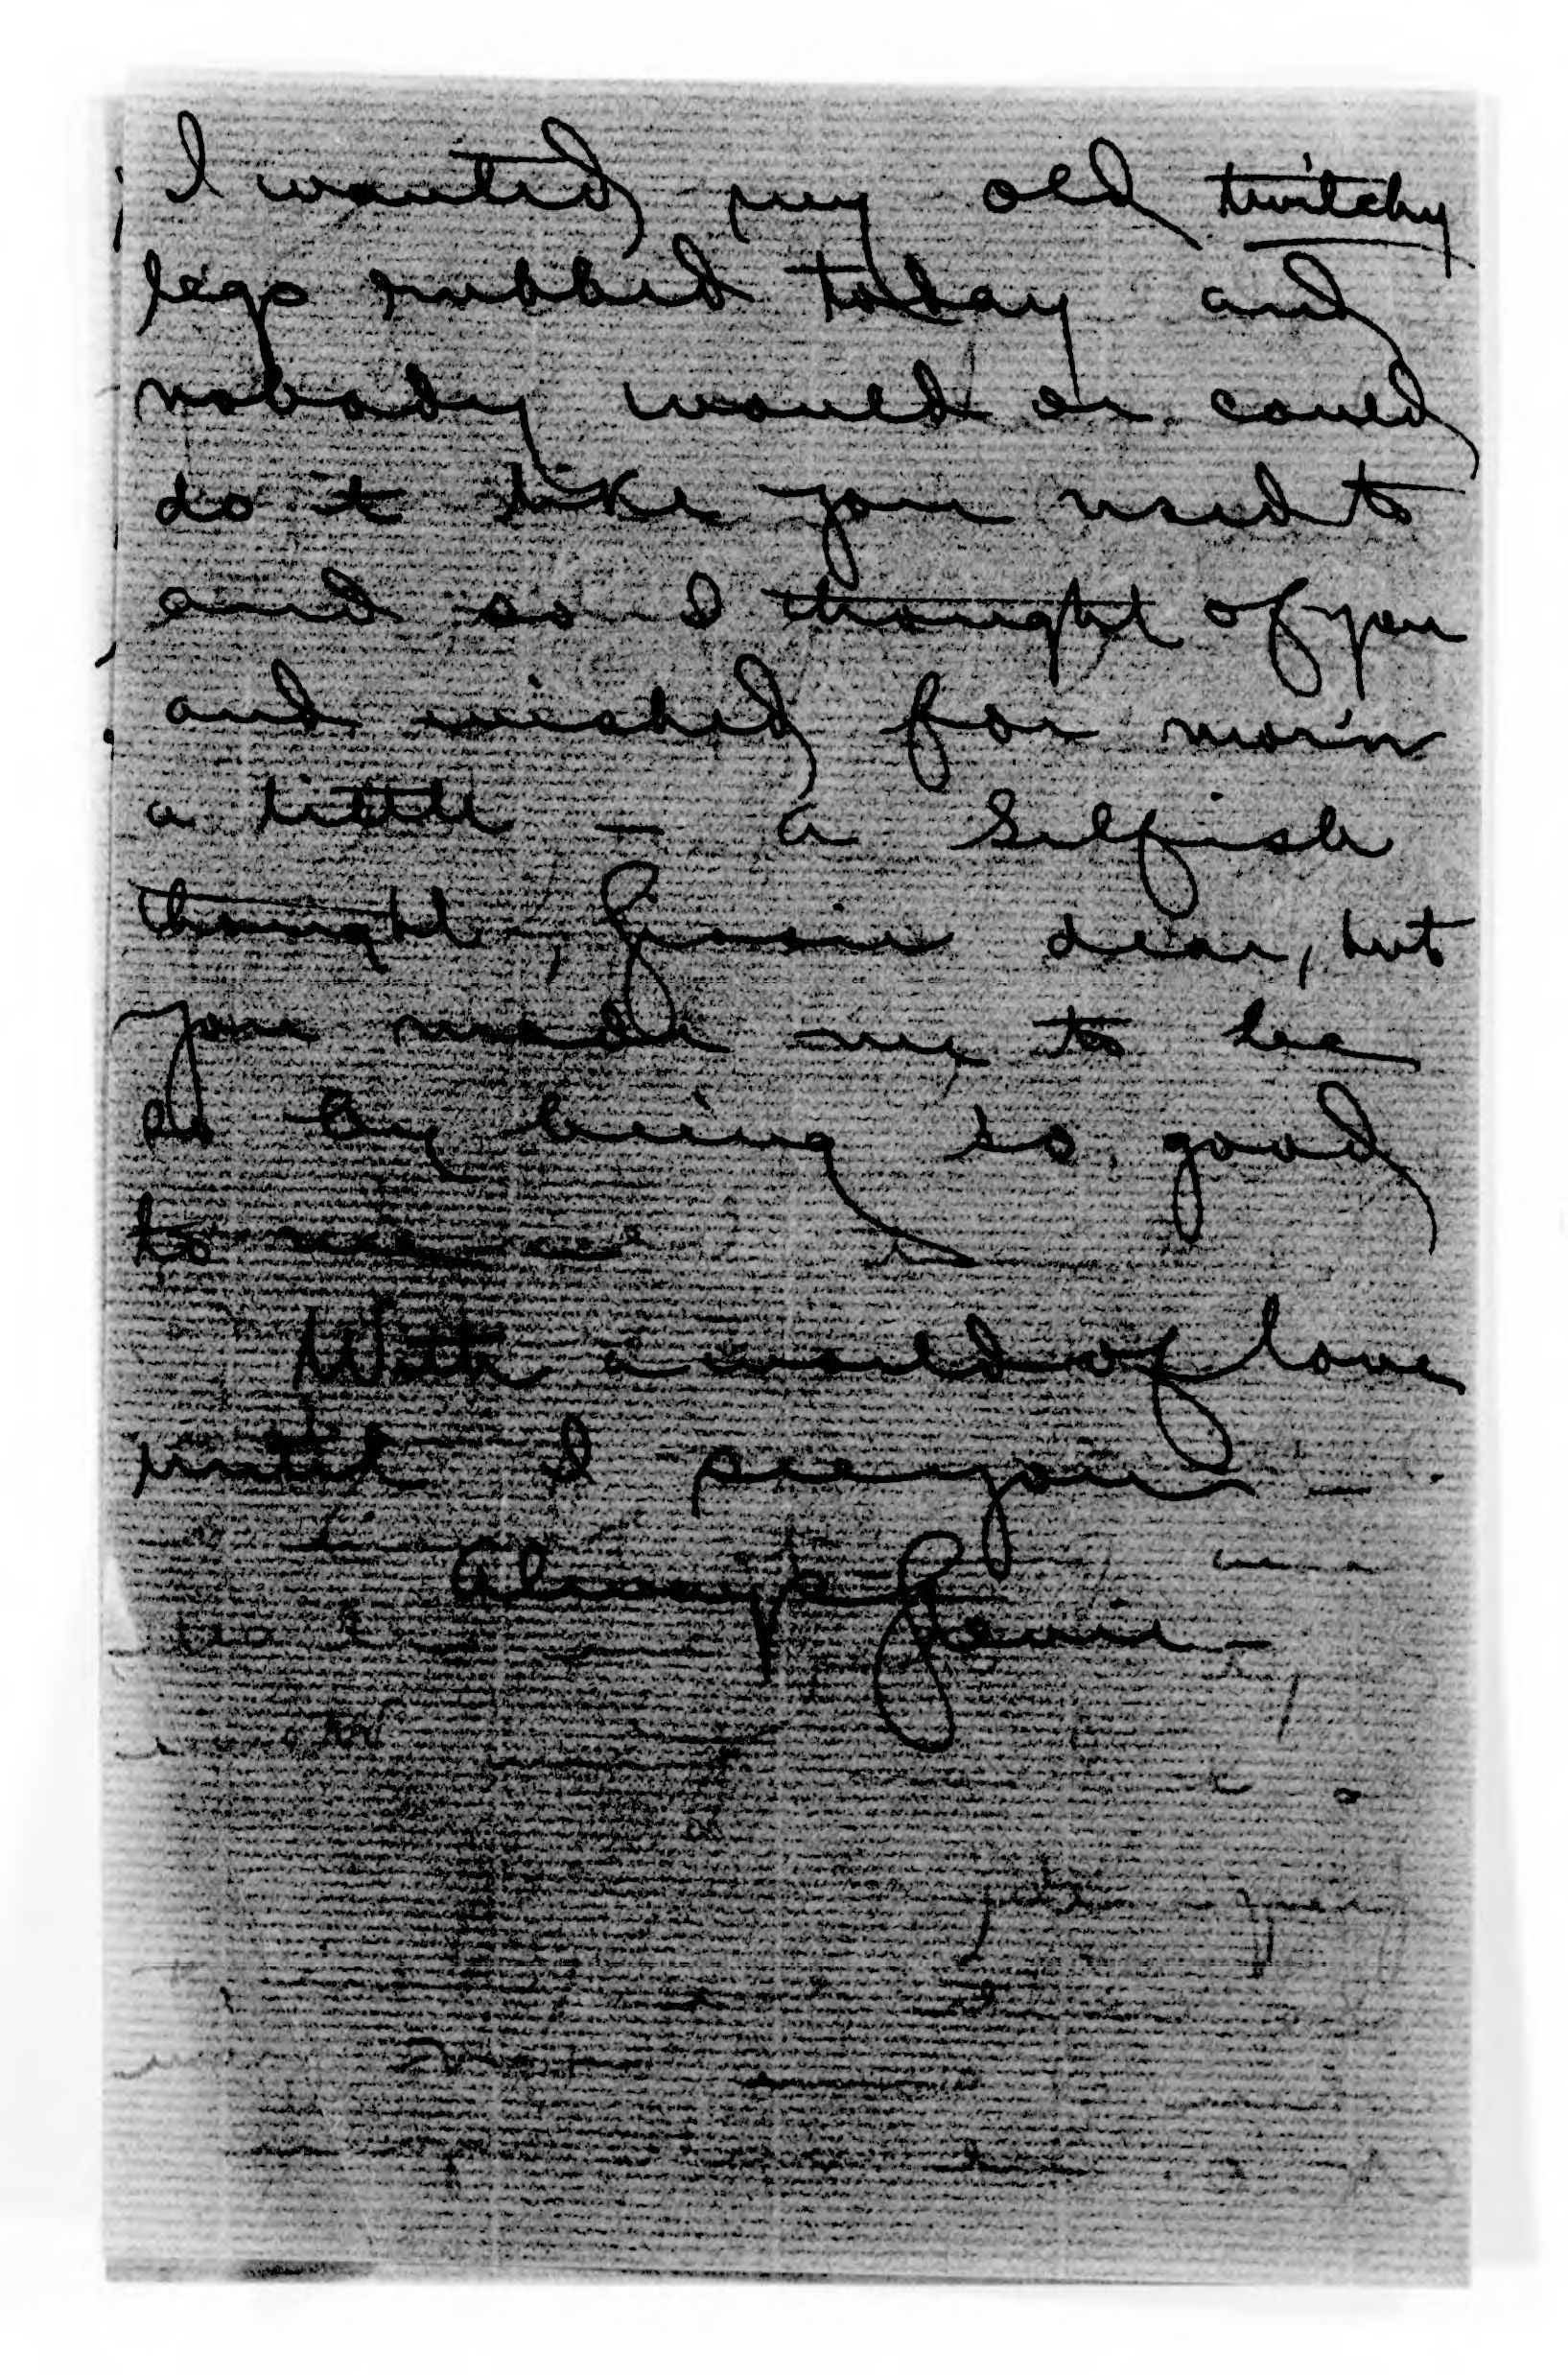 I wanted my old twitchy
legs rubbed today and
nobody would or could
do it like you used to
and so I thought of you
and wished for mor'n
a little - a selfish
thought, Jimsie dear, but
you made me to be
so by being so good
to me
With a world of love
until I see you -
Always